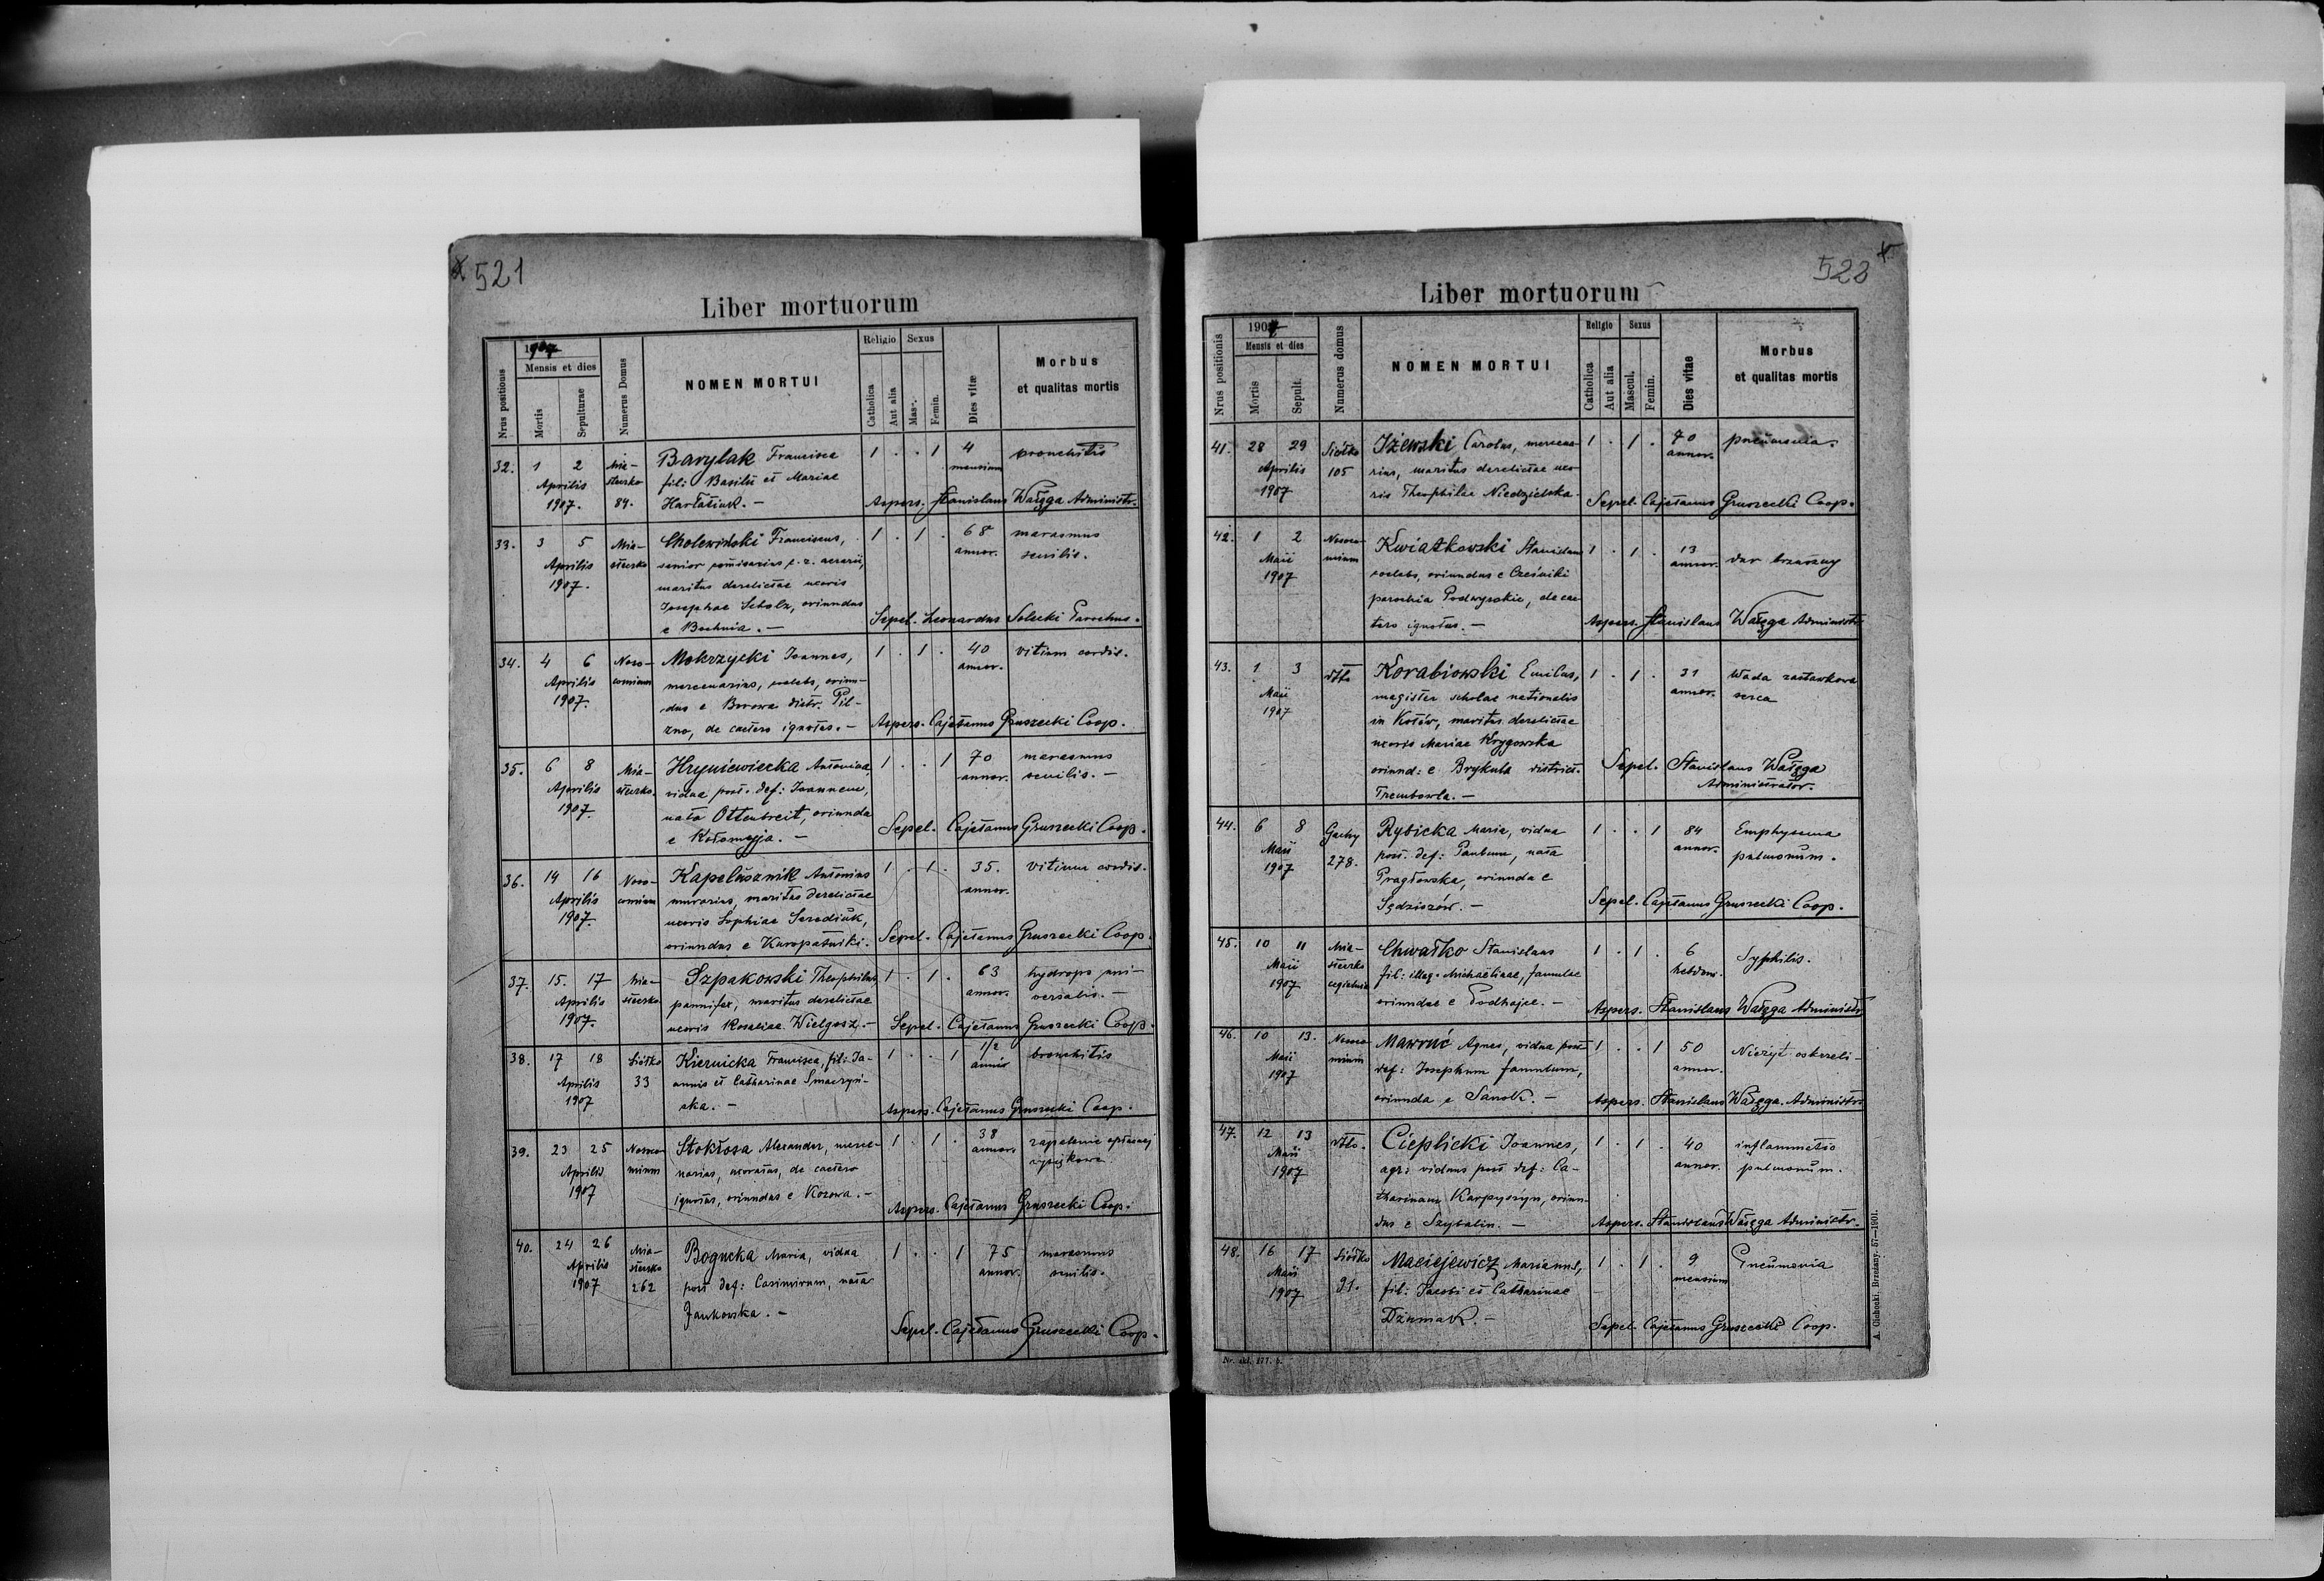 521
Liber mortuorum
Nrus positionis
1907
Mensis et dies
Mortis
Sepulturae
Numerus Domus
NOMEN MORTUI
Religio
Sexus
Catholica
Aut alia
Mas-.
Femin.
Dies vitae
Morbus
et qualitas mortis
32. 1 2 Mia- Barylak Francisca 1 . . 1 4 bronchitis
Aprilis steczko fil: Basilii et Mariae mensium
1907. 84. Harłasiuk. — Aspers. Stanislaus Wałęga Administr.
33. 3 5 Mia- Cholewiński Franciscus, 1 . 1 . 68 marasmus
Aprilis steczko senior comisarius c. r. aerarii, annor. senilis.
1907. maritus derelictae uxoris
Josephae Scholz, oriundus
e Bochnia. — Sepel. Leonardus Solecki Parochus.
34. 4 6 Noso- Mokrzycki Joannes, 1 . 1 . 40 vitium cordis.
Aprilis comium mercenarius, coelebs, oriun- annor.
1907. dus e Borowa distr. Pil-
zno, de caetero ignotus. — Aspers. Cajetanus Gruszecki Coop.
35. 6 8 Mia- Hryniewiecka Antonina, 1 . . 1 70 marasmus
Aprilis steczko. vidua post. def: Joannem, annor. senilis. —
1907. nata Ottenbreit, oriunda
e Kołomyja. — Sepel. Cajetanus Gruszecki Coop.
36. 14 16 Noso- Kapelusznik Antonius 1 . 1 . 35. vitium cordis.
Aprilis comium murarius, maritus derelictae annor.
1907. uxoris Sophiae Serediuk,
oriundus e Kuropatniki. Sepel. Cajetanus Gruszecki Coop.
37. 15. 17 Mia- Szpakowski Theophilus, 1 . 1 . 63 hydrops uni-
Aprilis steczko pannifex, maritus derelictae annor. versalis. —
1907. uoris Rosaliae Wielgosz. — Sepel. Cajetanus Gruszecki Coop.
38. 17 18 Siółko Kiernicka Francisca, fil: Jo- 1 . . 1 1/2 bronchitis
Aprilis 33 annis et Catharinae Smaczyń-
1907 ska. — Aspers. Cajetanus Gruszecki Coop.
39. 23 25 Nosoco- Stokłosa Alexander, merce- 1 . 1 . 38 zapalenie opłucnej
Aprilis mium narius, uxoratus, de caetero annor. wysiękowe
1907 ignotus, oriundus e Kozowa. — Aspers. Cajetanus Gruszecki Coop.
40. 24 26 Mia- Bogucka Maria, vidua 1 . . 1 75 marasmus
Aprilis steczko post def: Casimirum, nata annor. senilis.
1907 262 Jankowska. —
Sepel. Cajetanus Gruszecki Coop.
Liber mortuorum
Nrus positionis
1907
Mensis et dies
Mortis
Sepult.
Numerus domus
NOMEN MORTUI
Religio
Sexus
Catholica
Aut alia
Mascul.
Femin.
Dies vitae
Morbus
et qualitas mortis
41. 28 29 Siółko Iżewski Carolus, mercena- 1 . 1 . 70 pneumonia.
Aprilis 105 rius, maritus derelictae uxo- annor.
1907 ris Theophilae Niedzielska. Sepel. Cajetanus Gruszecki Coop.
42. 1 2 Nosoco- Kwiatkowski Stanislaus 1 . 1 . 13 dur brzuszny
Maii mium coelebs, oriundus e Cześniki annor.
1907 parochia Podwysokie, de cae-
tero ignotus. — Aspers. Stanislaus Wałęga Administr.
43. 1 3 dtto Korabiowski Emilus, 1 . 1 . 31 Wada zastawkowa
Maii magister scholae nationalis annor. serca
1907 in Kotów, maritus derelictae
uxoris Mariae Krygowska
oriund: e Brykula district. Sepel. Stanislaus Wałęga
Trembowla. — Administrator.
44. 6 8 Gaehy Rybicka Maria, vidua 1 . . 1 84 Emphysema
Maii 278. post. def: Paulum, nata annor. pulmonum.
1907 Pragłowska, oriunda e
Sędziszów. — Sepel. Cajetanus Gruszecki Coop.
45. 10 11 Mia- Chwałko Stanislaus 1 . 1 . 6 Syphilis.
Maii steczko fil: illeg. Michaelinae, famulae hebdom.
1907 cegielnia oriundae e Podhajce. — Aspers. Stanislaus Wałęga Administr.
46. 10 13. Nosoco- Mawruć Agnes, vidua post 1 . . 1 50 Nieżyt oskrzeli —
Maii mium def: Josephum famulum, annor.
1907 oriunda e Sanok. — Aspers. Stanislaus Wałęga. Administr.
47. 12 13 dtto. Cieplicki Joannes, 1 . 1 . 40 inflammatio
Maii agr: viduus post def: Ca- annor. pulmonum.
1907 tharinam Karpyszyn, oriun-
dus e Szybalin. — Aspers. Stanislaus Wałęga Administr.
48. 16 17 Siółko Maciejewicz Marianus, 1 . 1 . 9 Pneumonia
Maii 91. fil: Jacobi et Catharinae mensium
1907 Dżumak. — Sepel. Cajetanus Gruszecki Coop.